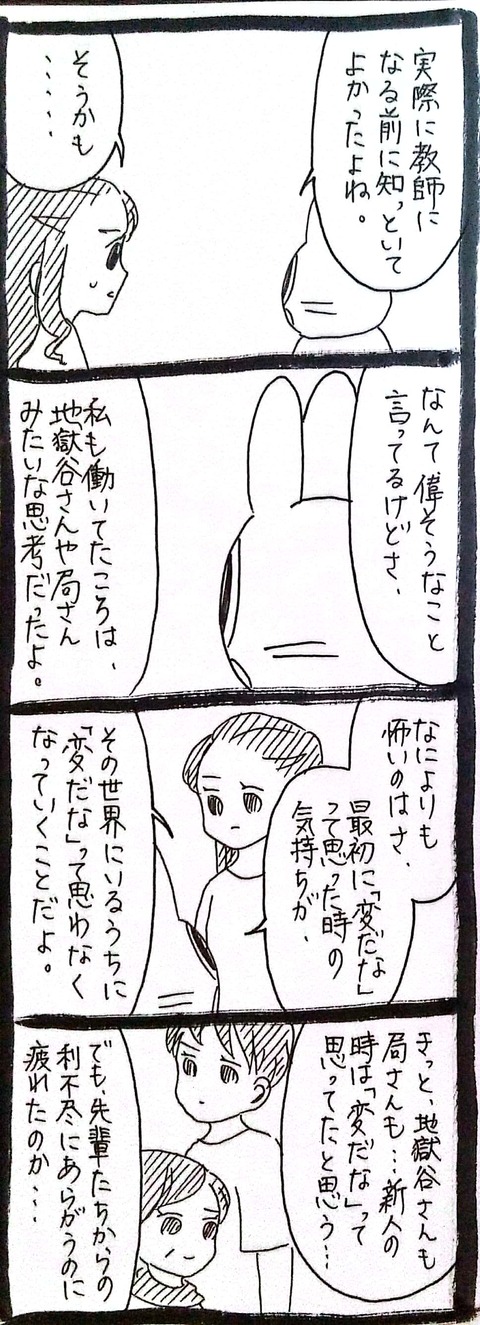 実際に教師に
なる前に知っといて
よかったよね。
そうかも
・・・・・
なんて偉そうなこと
言ってるけどさ、
私も働いてたころは、
地獄谷さんや局さん
みたいな思考だったよ。
なによりも
怖いのはさ、
最初に「変だな」
って思った時の
気持ちが、
その世界にいるうちに
「変だな」って思わなく
なっていくことだよ。
きっと、地獄谷さんも
局さんも…新人の
時は「変だな」って
思ってたと思う…
でも、先輩たちからの
利不尽にあらがうのに
疲れたのか…